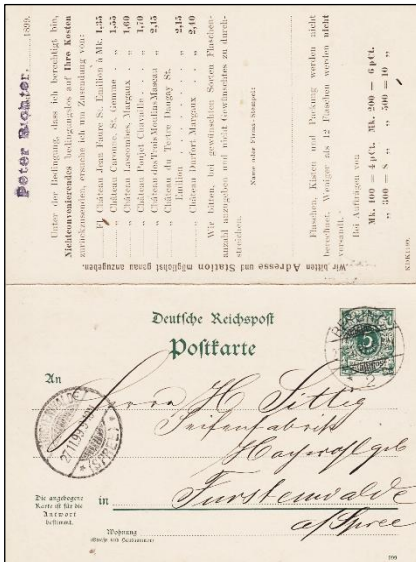 1899.
Peter Richter.
Unter der Bedingung, dass ich berechtigt bin,
Nichtconvenirendes bedingungslos auf Ihre Kosten
zurückzusenden, ersuche ich um Zusendung von:
Fl. Château Jean Faure St. Emilion à Mk. 1,35
" Château Caronne, St. Gemme " " 1,55
" Château Lascombes, Margaux " " 1,60
" Château Poujet Lhayalle " " 1,70
" Château des Trois Moulins Macau " " 2,15
" Château du Tertre Daugay St.
Emilion " " 2,15
" Château Durfort Margaux " " 2,40
Wir bitten, bei gewünschten Sorten Flaschen-
anzahl anzugeben und nicht Gewünschtes zu durch-
streichen.
Name oder Firma-Stempel:
Flaschen, Kisten und Packung werden nicht
berechnet. Weniger als 12 Flaschen werden nicht
versandt.
Bei Aufträgen von
Mk. 100 = 4 pCt. Mk. 200 = 6 pCt.
" 300 = 8 " " 500 = 10 "
Wir bitten Adresse und Station möglichst genau anzugeben.
Deutsche Reichspost
Postkarte
An
Herrn H. Sittig
Seifenfabrik
in Fürstenwalde
a/Spree
Die angebogene
Karte ist für die
Antwort
bestimmt.
Wohnung
(Straße und Hausnummer)
FÜRSTENWALDE
27.11.99
(SPREE)
BERLIN
5